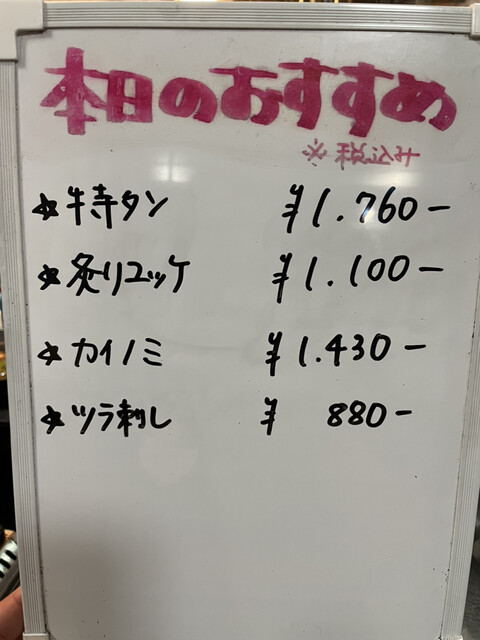 本日のおすすめ
※税込み
☆特タン ¥1.760-
☆炙りユッケ ¥1.100-
☆カイノミ ¥1.430-
☆ツラ刺し ¥ 880-